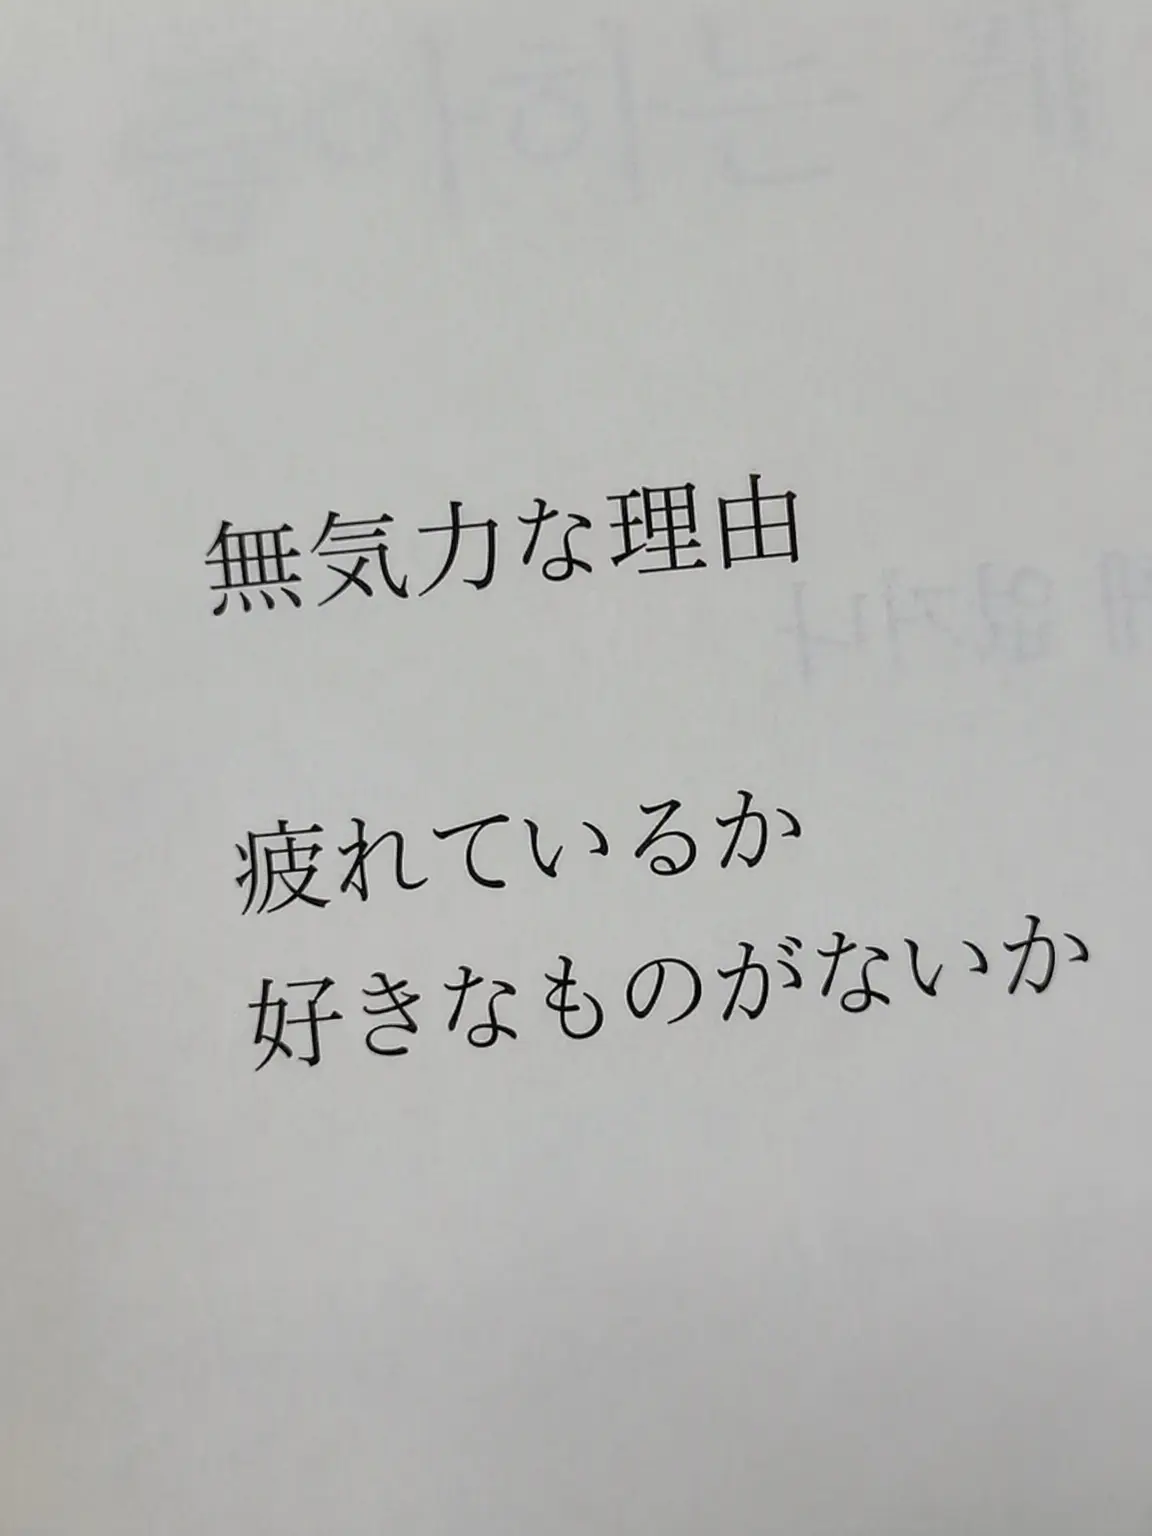 無気力な理由
疲れているか
好きなものがないか